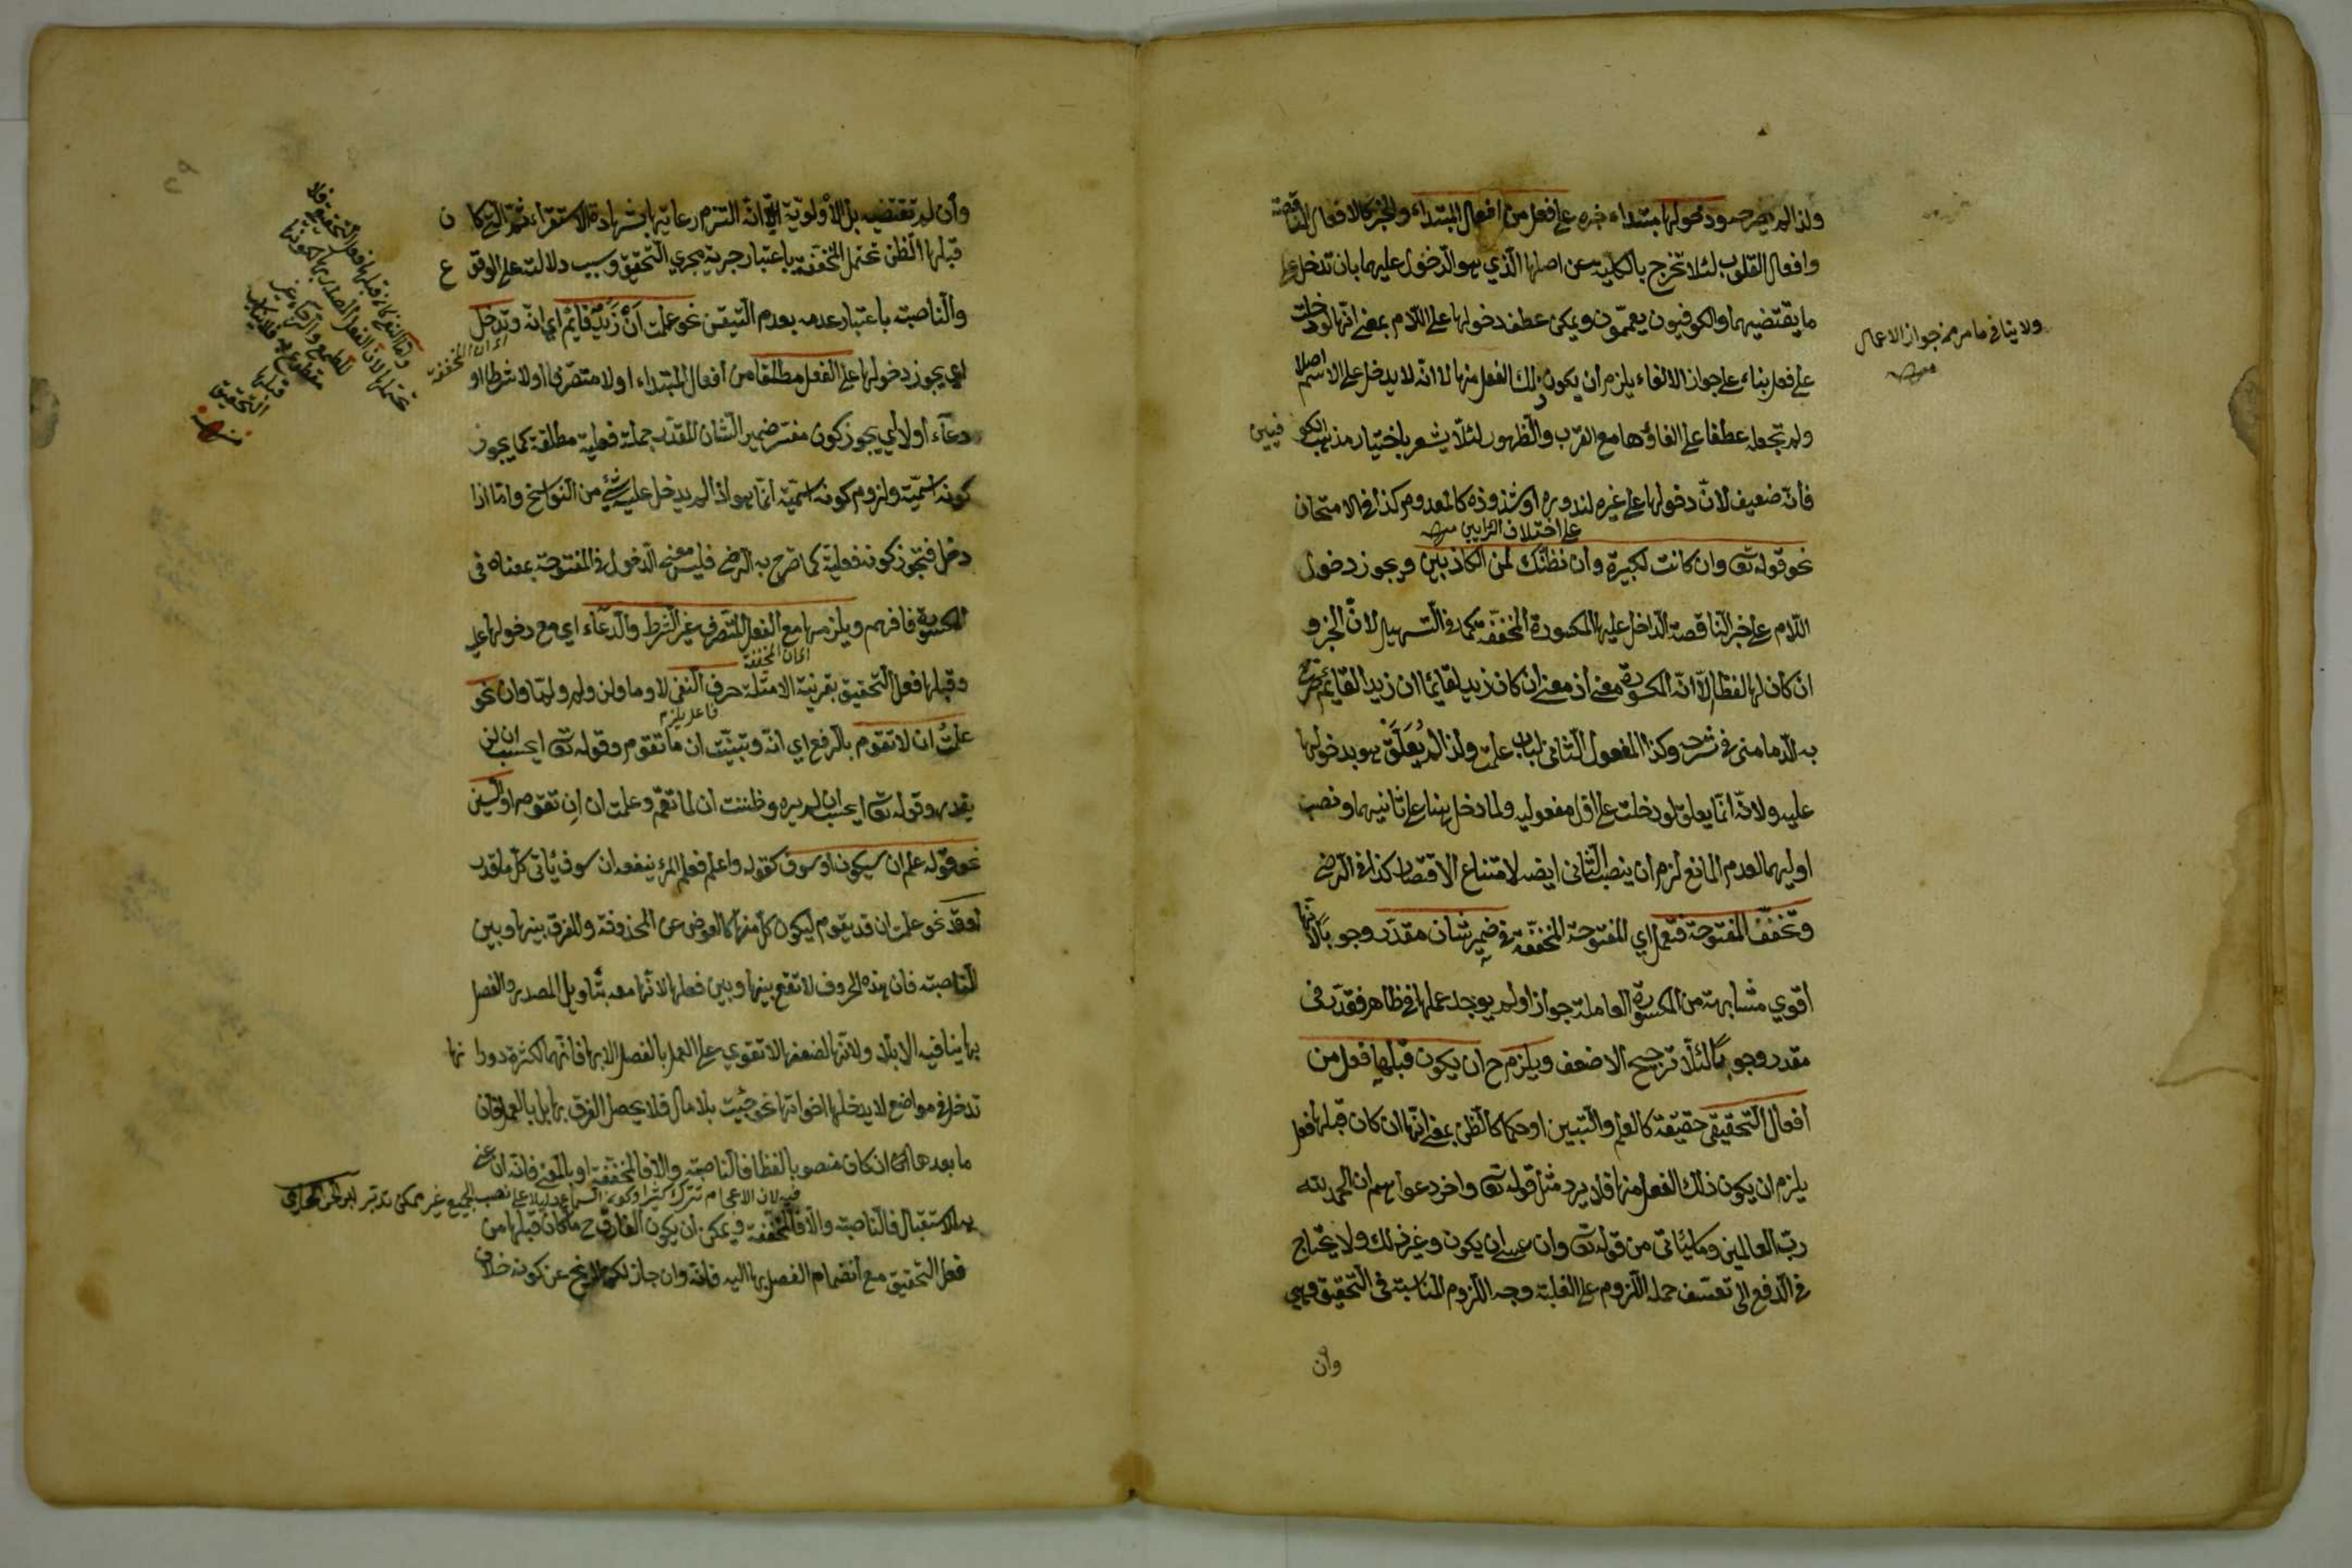 ولذا لم يضر دخولها مبتداء خبره على فعل من افعال المبتداء والخبر كالافعال الناقصة
وافعال القلوب لئلا تخرج بالكلية عن اصلها الذي هو الدخول عليهما بان تدخل على
ما يقتضيهما والكوفيون يعممون ويمكن عطف دخولها على اللام بمعنى انها لو دخلت
على فعل بناء على جواز الالغاء يلزم ان يكون ذلك الفعل منها لا انه لا يدخل على الاسم اصلا
ولم تجعله عطفا على الغاؤها مع القرب والظهور لئلا يشعر باختيار مذهب الكوفيين
فانه ضعيف لان دخولها على غيره لندوره او شذوذه كالمعدوم كذا في الامتحان
على اختلاف الرايين منه
نحو قوله تع وان كانت لكبيرة وان نظنك لمن الكاذبين ويجوز دخول
اللام على خبر الناقصة الداخل عليها المكسورة المخففة كما في التسهيل لان الخبر و
ان كان لها لفظا الا انه المكسورة معنى اذ معنى ان كان زيد لقائما ان زيدا لقائم صرح
به الدماميني في شرحه وكذا المفعول الثاني لباب علمت ولذا لم يُعَلَّق هو بدخولها
عليه ولانه انما يعلق لو دخلت على اول مفعوليه ولما دخل هنا على ثانيهما ونصب
اوليهما لعدم المانع لزم ان ينصب الثاني ايضا لامتناع الاقتصار كذا في الرضي
وتخفف المفتوحة فتعمل اي المفتوحة المخففة في ضمير شان مقدر وجوبا لانها
اقوي مشابهة من المكسورة العاملة جوازا ولم يوجد عملها في ظاهر فقدر في
مقدر وجوبا لئلا ترجيح الاضعف ويلزم ح ان يكون قبلها فعل من
افعال التحقيق حقيقة كالعلم والتبيين او حكما كالظن بمعنى انها ان كان قبلها فعل
يلزم ان يكون ذلك الفعل منها فلا يرد مثل قوله تع واخر دعواهم ان الحمد لله
رب العالمين وما ياتي من قوله تع وان عسى ان يكون وغير ذلك ولا يحتاج
في الدفع الى تعسف حمل اللزوم على الغلبة وجه اللزوم المناسبة في التحقيق وهي
وان
ولا ينافي ما مر من جواز الاعمال
منه
وان لم تقتضيه بل الاولوية الا انه التزم رعايتها بشهادة الاستقراء ثم التي كان
قبلها الظن تحتمل المخففة باعتبار جريه مجري التحقيق وسبب دلالته على الوقوع
والناصبة باعتبار عدمه بعدم التيقن نحو علمت اَنْ زَيْدٌ قائمٌ اي انه وتدخل
اي ان المخففة
اي يجوز دخولها على الفعل مطلقا من افعال المبتداء اولا متصرفا اولا شرطا او
دعاء اولا اي يجوز كون مفسر ضمير الشان المقدر جملة فعلية مطلقة كما يجوز
كونه اسمية ولزوم كونه اسمية انما هو اذا لم يدخل عليه شيء من النواسخ واما اذا
دخل فتجوز كونه فعلية كما صرح به الرضي فليس معنى الدخول في المفتوحة بمعناه في
المكسورة فافهم ويلزمها مع الفعل المتصرف غير الشرط والدعاء اي مع دخولها على
اي ان المخففة
وقبلها فعل التحقيق بقرينة الامثلة حرف النفي لا وما ولن ولم ولما وان نحو
فاعل يلزم
علمتُ ان لا تقوم بالرفع اي انه وتبينت ان ما تقوم وقوله تع ايحسب ان لن
يقدر وقوله تع ايحسب ان لم يره وظننت ان لما تقم وعلمت ان اِن تقوم او السين
نحو قوله علم ان سيكون او سوف كقوله واعلم فعلم المرء ينفعه ان سوف ياتي كل ما قدر
او قد نحو علمت ان قد يقوم ليكون كل منها كالعوض عن المحذوفة وللفرق بينها وبين
الناصبة فان هذه الحروف لا تقع بينها وبين فعلها لانها معه بتاويل المصدر والفصل
بها ينافيه الا بلا ولانها لضعفها لا تقوي على العمل بالفصل الا بها فانها لكثرة دورانها
تدخل في مواضع لا يدخلها اخواتها نحو جئت بلا مال فلا يحصل الفرق بها بل بالعمل فان
ما بعدها ان كان منصوبا لفظا فالناصبة والا فالمخففة او بالمعنى فانه ان عنى
به الاستقبال فالناصبة والا فالمخففة ويمكن ان يكون الفارق ح ما كان قبلها من
فعل التحقيق مع انضمام الفصل بها اليه فانه وان جاز لكنه لم يخرج عن كونه خلاف